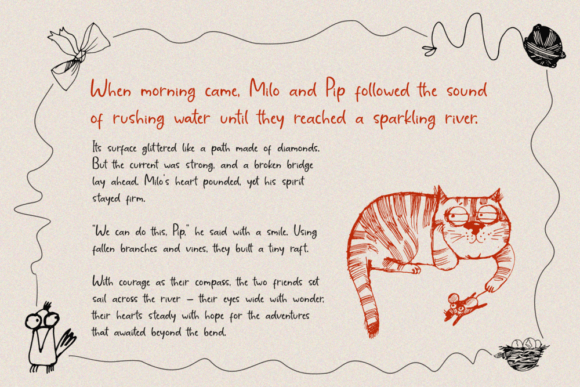 When morning came, Milo and Pip followed the sound
of rushing water until they reached a sparkling river.
Its surface glittered like a path made of diamonds.
But the current was strong, and a broken bridge
lay ahead. Milo's heart pounded, yet his spirit
stayed firm.
"We can do this, Pip," he said with a smile. Using
fallen branches and vines, they built a tiny raft.
With courage as their compass, the two friends set
sail across the river – their eyes wide with wonder,
their hearts steady with hope for the adventures
that awaited beyond the bend.